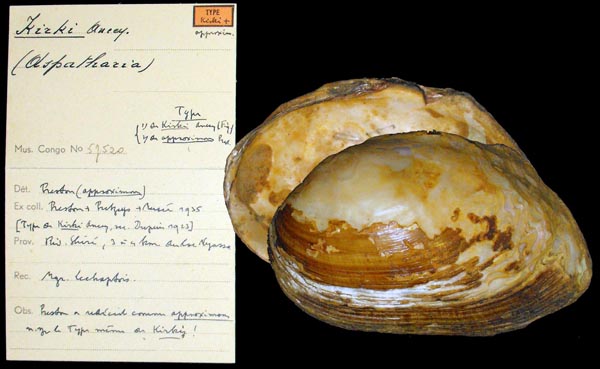 TYPE
Kirki +
approxim.
Kirki Ancey.
(Aspatharia)
Type
1) de Kirki Ancey (Fig)
2) de approximans Prest.
Mus. Congo No 59520
Dét. Preston (approximans)
Ex coll. Preston + Putzeys + Musée 1935
[Type de Kirki Ancey, sec. Dupuis 1923]
Prov. Riv. Shiré, 3 à 4 km du Lac Nyassa
Rec. Mgr. Lechaptois.
Obs. Preston a redécrit comme approximans
le Type même de Kirki!